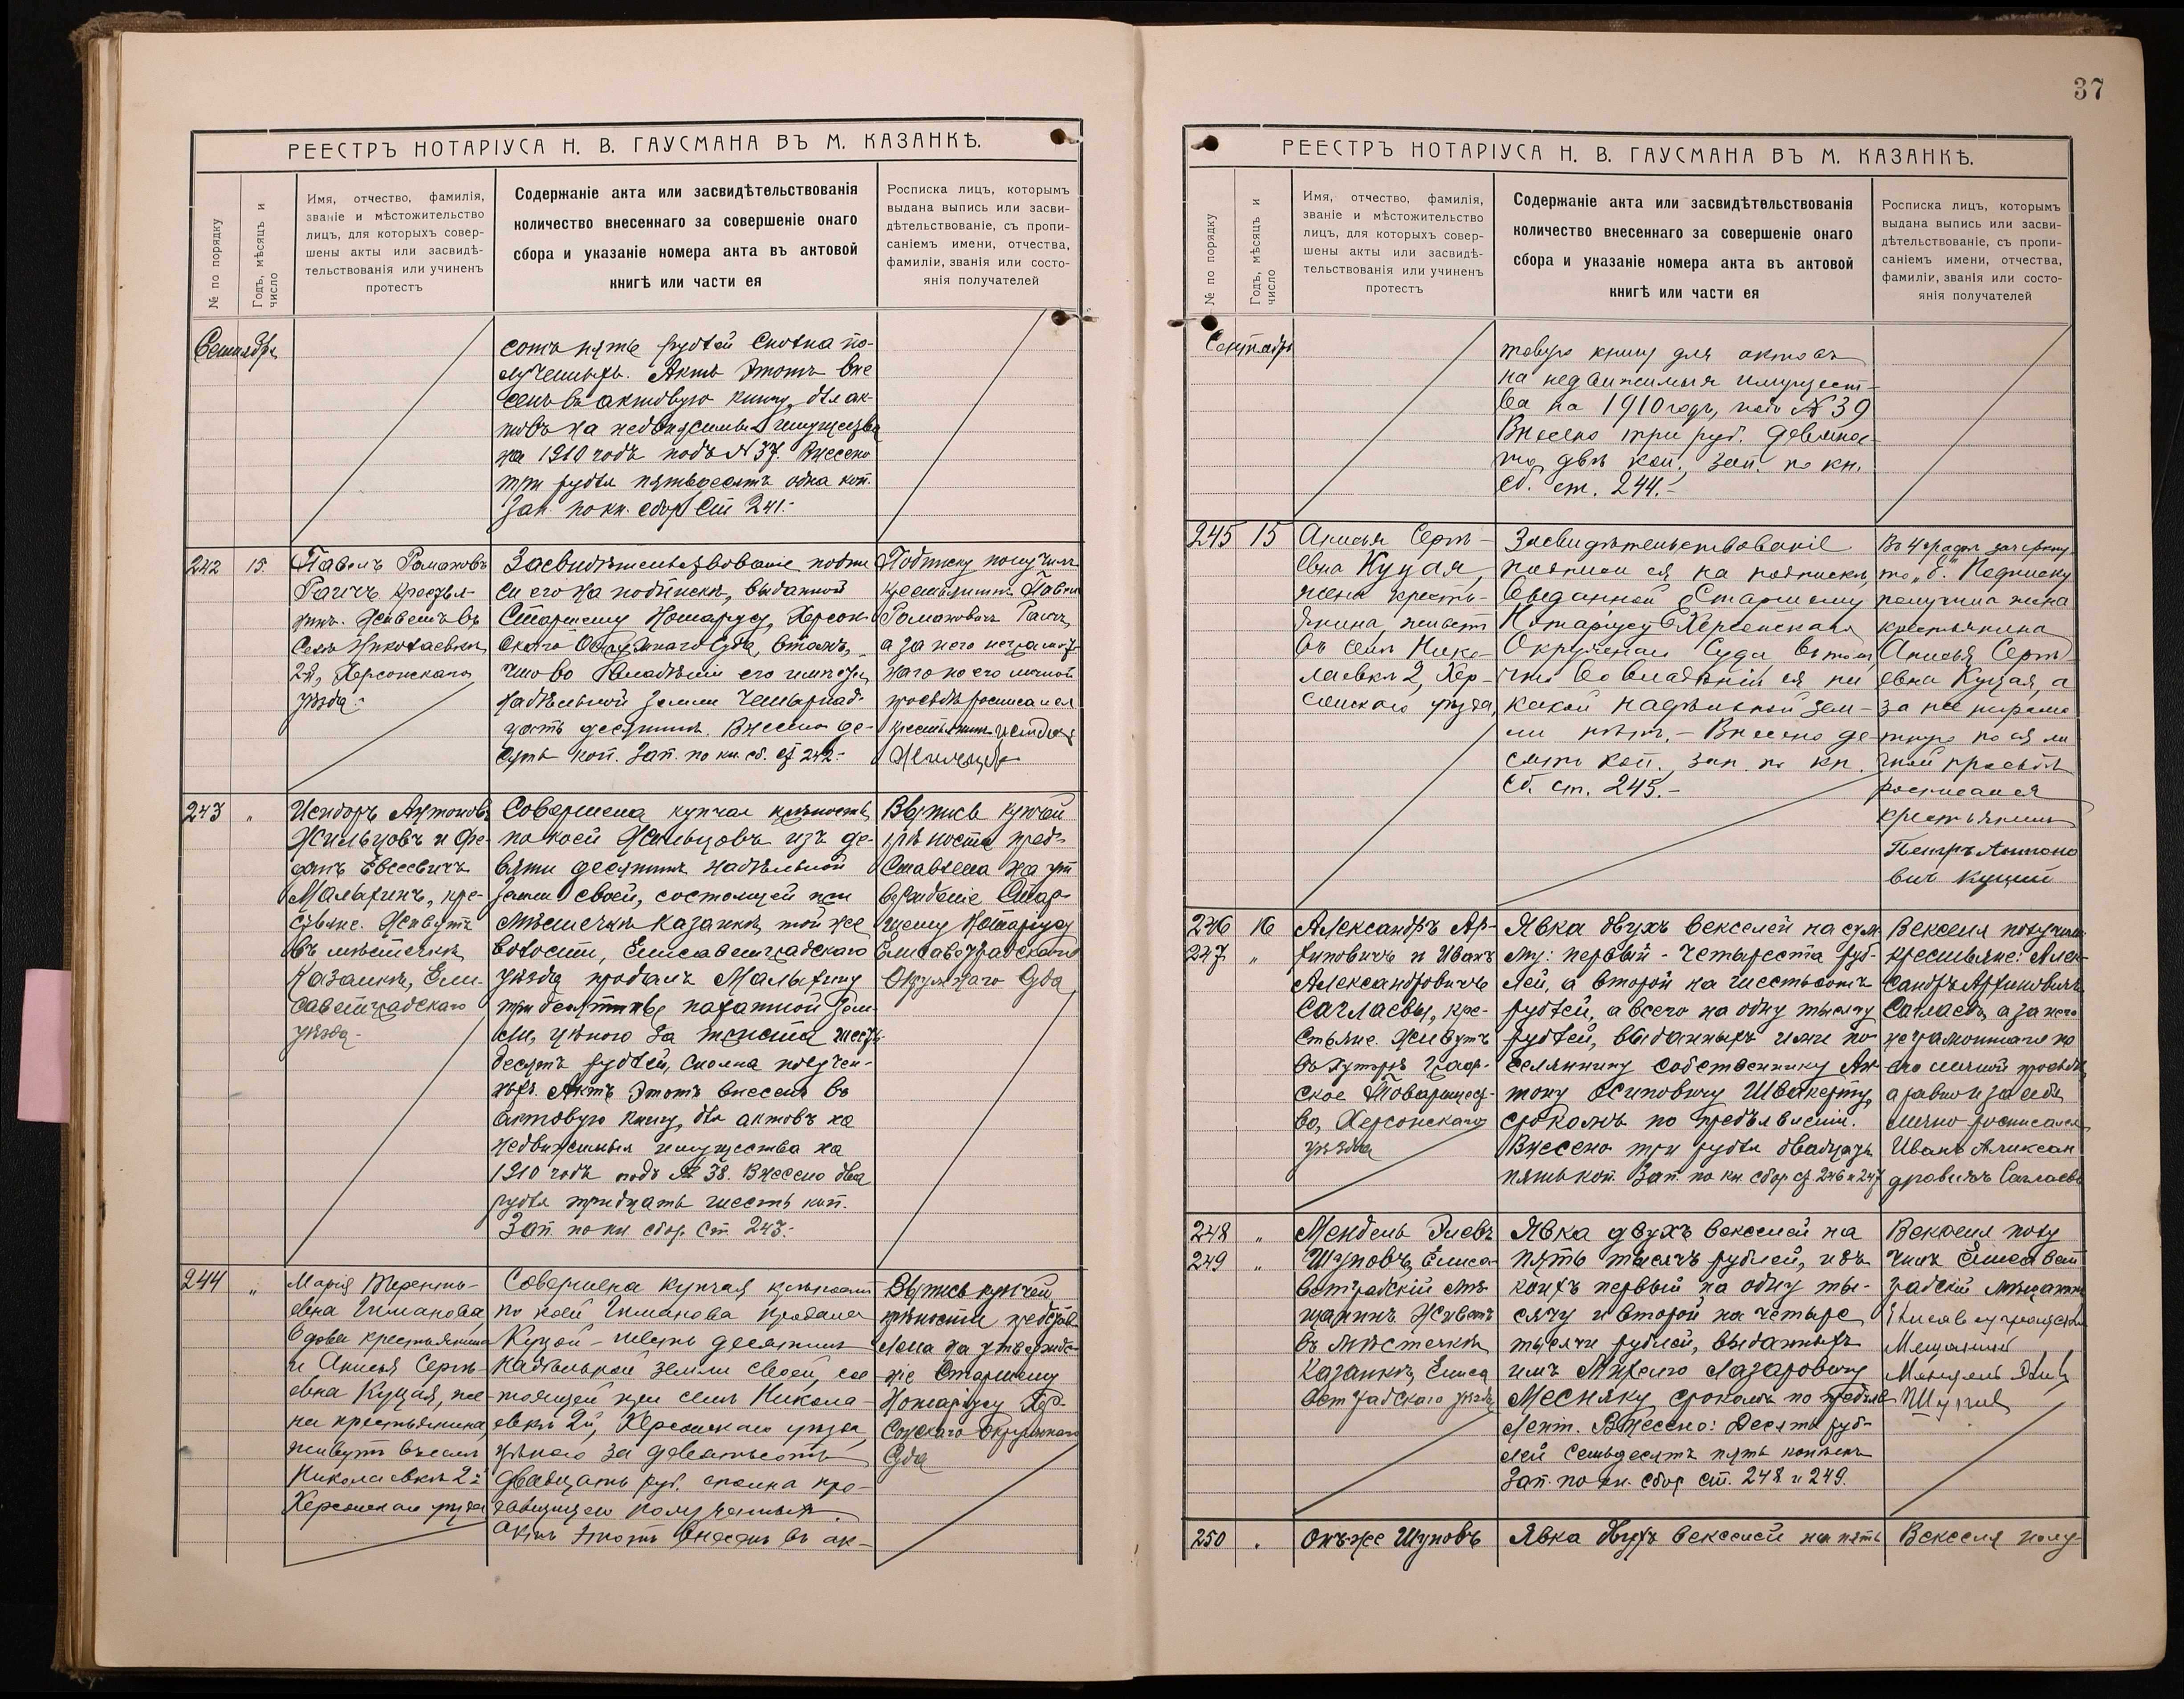 РЕЕСТРЪ НОТАРІУСА Н. В. ГАУСМАНА ВЪ М. КАЗАНКѢ.
№ по порядку
Годъ, мѣсяцъ и
число
Имя, отчество, фамилія,
званіе и мѣстожительство
лицъ, для которыхъ совер-
шены акты или засвидѣ-
тельствованія или учиненъ
протестъ
Содержаніе акта или засвидѣтельствованія
количество внесеннаго за совершеніе онаго
сбора и указаніе номера акта въ актовой
книгѣ или части ея
Росписка лицъ, которымъ
выдана выпись или засви-
дѣтельствованіе, съ пропи-
саніемъ имени, отчества,
фамиліи, званія или состо-
янія получателей
Сентябрь
сотъ пять рублей сполна по-
лученныхъ. Актъ этотъ вне
сенъ въ актовую книгу, для ак-
товъ на недвижимыя имущества
на 1910 годъ подъ № 37. Внесено
три рубля пятьдесятъ одна коп.
Зап. по кн. сбор. ст. 241.-
242
15.
Павелъ Романовъ
крестья-
нинъ. Живетъ въ
селѣ Николаевкѣ
2й, Херсонскаго
уѣзда.-
Засвидѣтельствованіе подпи
си его на подпискѣ, выданной
Старшему Нотаріусу, Херсон-
скаго Окружнаго Суда, въ томъ,
что во владѣніи его имѣется
надѣльной земли четырнад-
цать десятинъ. Внесено де-
сять коп. Зап. по кн. сб. ст. 242.-
Подписку получилъ
крестьянинъ Павелъ
Романовичъ
а за него неграмот-
наго по его личной
просьбѣ росписался
крестьянинъ
243
"
Исидоръ Антоновъ
Жильцовъ и Фе-
доръ Евсеевичъ
Малыхинъ, кре-
стьяне. Живутъ
въ мѣстечкѣ
Казанкѣ, Ели-
саветградскаго
уѣзда.-
Совершена купчая крѣпость,
по коей Жильцовъ изъ де-
вяти десятинъ надѣльной
земли своей, состоящей при
мѣстечкѣ Казанкѣ, той же
волости, Елисаветградскаго
уѣзда продалъ Малыхину
три десятины пахатной зем-
ли, цѣною за триста шесть-
десятъ рублей, сполна получен-
ныхъ. Актъ этотъ внесенъ въ
актовую книгу, для актовъ на
недвижимыя имущества на
1910 годъ подъ № 38. Внесено два
рубля тридцать шесть коп.
Зап. по кн. сбор. ст. 243.-
Выпись купчей
крѣпости пред-
ставлена на ут
вержденіе Стар-
шему Нотаріусу
Елисаветградскаго
Окружнаго Суда
244
"
Марія Терентье-
евна Чиманова,
вдова крестьянина
и Анисья Сергѣ-
евна Куцая, же-
на крестьянина,
живутъ въ селѣ
Николаевкѣ 2й
Херсонскаго уѣзда
Совершена купчая крѣпость
по коей Чиманова продала
Куцой - шесть десятинъ
надѣльной земли своей, сос
тоящей при селѣ Никола-
евкѣ 2й, Херсонскаго уѣзда,
цѣною за девятьсотъ
двадцать руб. сполна про-
давщицею полученныхъ.
Актъ этотъ внесенъ въ ак-
Выпись купчей
крѣпости представ
лена на утвержде-
ніе Старшему
Нотаріусу Хер-
сонскаго Окружнаго
Суда
37
РЕЕСТРЪ НОТАРІУСА Н. В. ГАУСМАНА ВЪ М. КАЗАНКѢ.
№ по порядку
Годъ, мѣсяцъ и
число
Имя, отчество, фамилія,
званіе и мѣстожительство
лицъ, для которыхъ совер-
шены акты или засвидѣ-
тельствованія или учиненъ
протестъ
Содержаніе акта или засвидѣтельствованія
количество внесеннаго за совершеніе онаго
сбора и указаніе номера акта въ актовой
книгѣ или части ея
Росписка лицъ, которымъ
выдана выпись или засви-
дѣтельствованіе, съ пропи-
саніемъ имени, отчества,
фамиліи, званія или состо-
янія получателей
Сентябрь
товую книгу для актовъ
на недвижимыя имущест-
ва на 1910 годъ, подъ № 39
Внесено три руб. девянос-
то двѣ коп., зап. по кн.
сб. ст. 244.-
245
15
Анисья Сергѣ-
евна Куцая,
жена кресть-
янина, живетъ
въ селѣ Нико-
лаевкѣ 2, Хер-
сонскаго уѣзда,
Засвидѣтельствованіе
подписи ея на подпискѣ,
выданной Старшему
Нотаріусу Херсонскаго
Окружнаго Суда въ томъ,
что во владѣніи ея ни
какой надѣльной зем-
ли нѣтъ.- Внесено де-
сять коп., зап. по кн.
сб. ст. 245.-
Во 4 графѣ зачеркну-
то „б". Подписку
получила жена
крестьянина
Анисья Сергѣ-
евна Куцая, а
за нее неграмо
тную по ея ли
чной просьбѣ
росписался
крестьянинъ
Петръ Антоно
вич Куций
246
247
16
"
Александръ Ар-
хиповичъ и Иванъ
Александровичъ
Саглаевы, кре-
стьяне. Живутъ
въ хуторѣ Граф-
ское Товарищест-
во, Херсонскаго
уѣзда
Явка двухъ векселей на сум-
му: первый - четыреста руб-
лей, а второй на шестьсотъ
рублей, а всего на одну тысячу
рублей, выданныхъ ими по
селянину собственнику Ан-
тону Осиповичу Швакерту,
срокомъ по предъявленіи.
Внесено три рубля двадцать
пять коп. Зап. по кн. сбор. ст. 246 и 247
Векселя получили
крестьяне: Алек-
сандръ Архиповичъ
Саглаевъ, а за него
неграмотнаго по
его личной просьбѣ
а равно и за себя
лично росписался
Иванъ Алексан
дровичъ Саглаевъ
248
249
"
"
Мендель Элевъ
Шуповъ, Елиса-
ветградскій мѣ-
щанинъ. Живетъ
въ мѣстечкѣ
Казанкѣ, Елиса
ветградскаго уѣзда
Явка двухъ векселей на
пять тысячъ рублей, изъ
коихъ первый на одну ты-
сячу и второй на четыре
тысячи рублей, выданныхъ
имъ Михелю Лазаровичу
Месняку, срокомъ по предъяв-
леніи. Внесено: Десять руб-
лей семьдесятъ пять копѣекъ
Зап. по кн. сбор. ст. 248 и 249.
Векселя полу
чилъ Елисавет
градскій мѣщанинъ
Мещанинъ
Мендель
250
"
Онъ-же Шуповъ
Явка двухъ векселей на пять
Векселя полу-